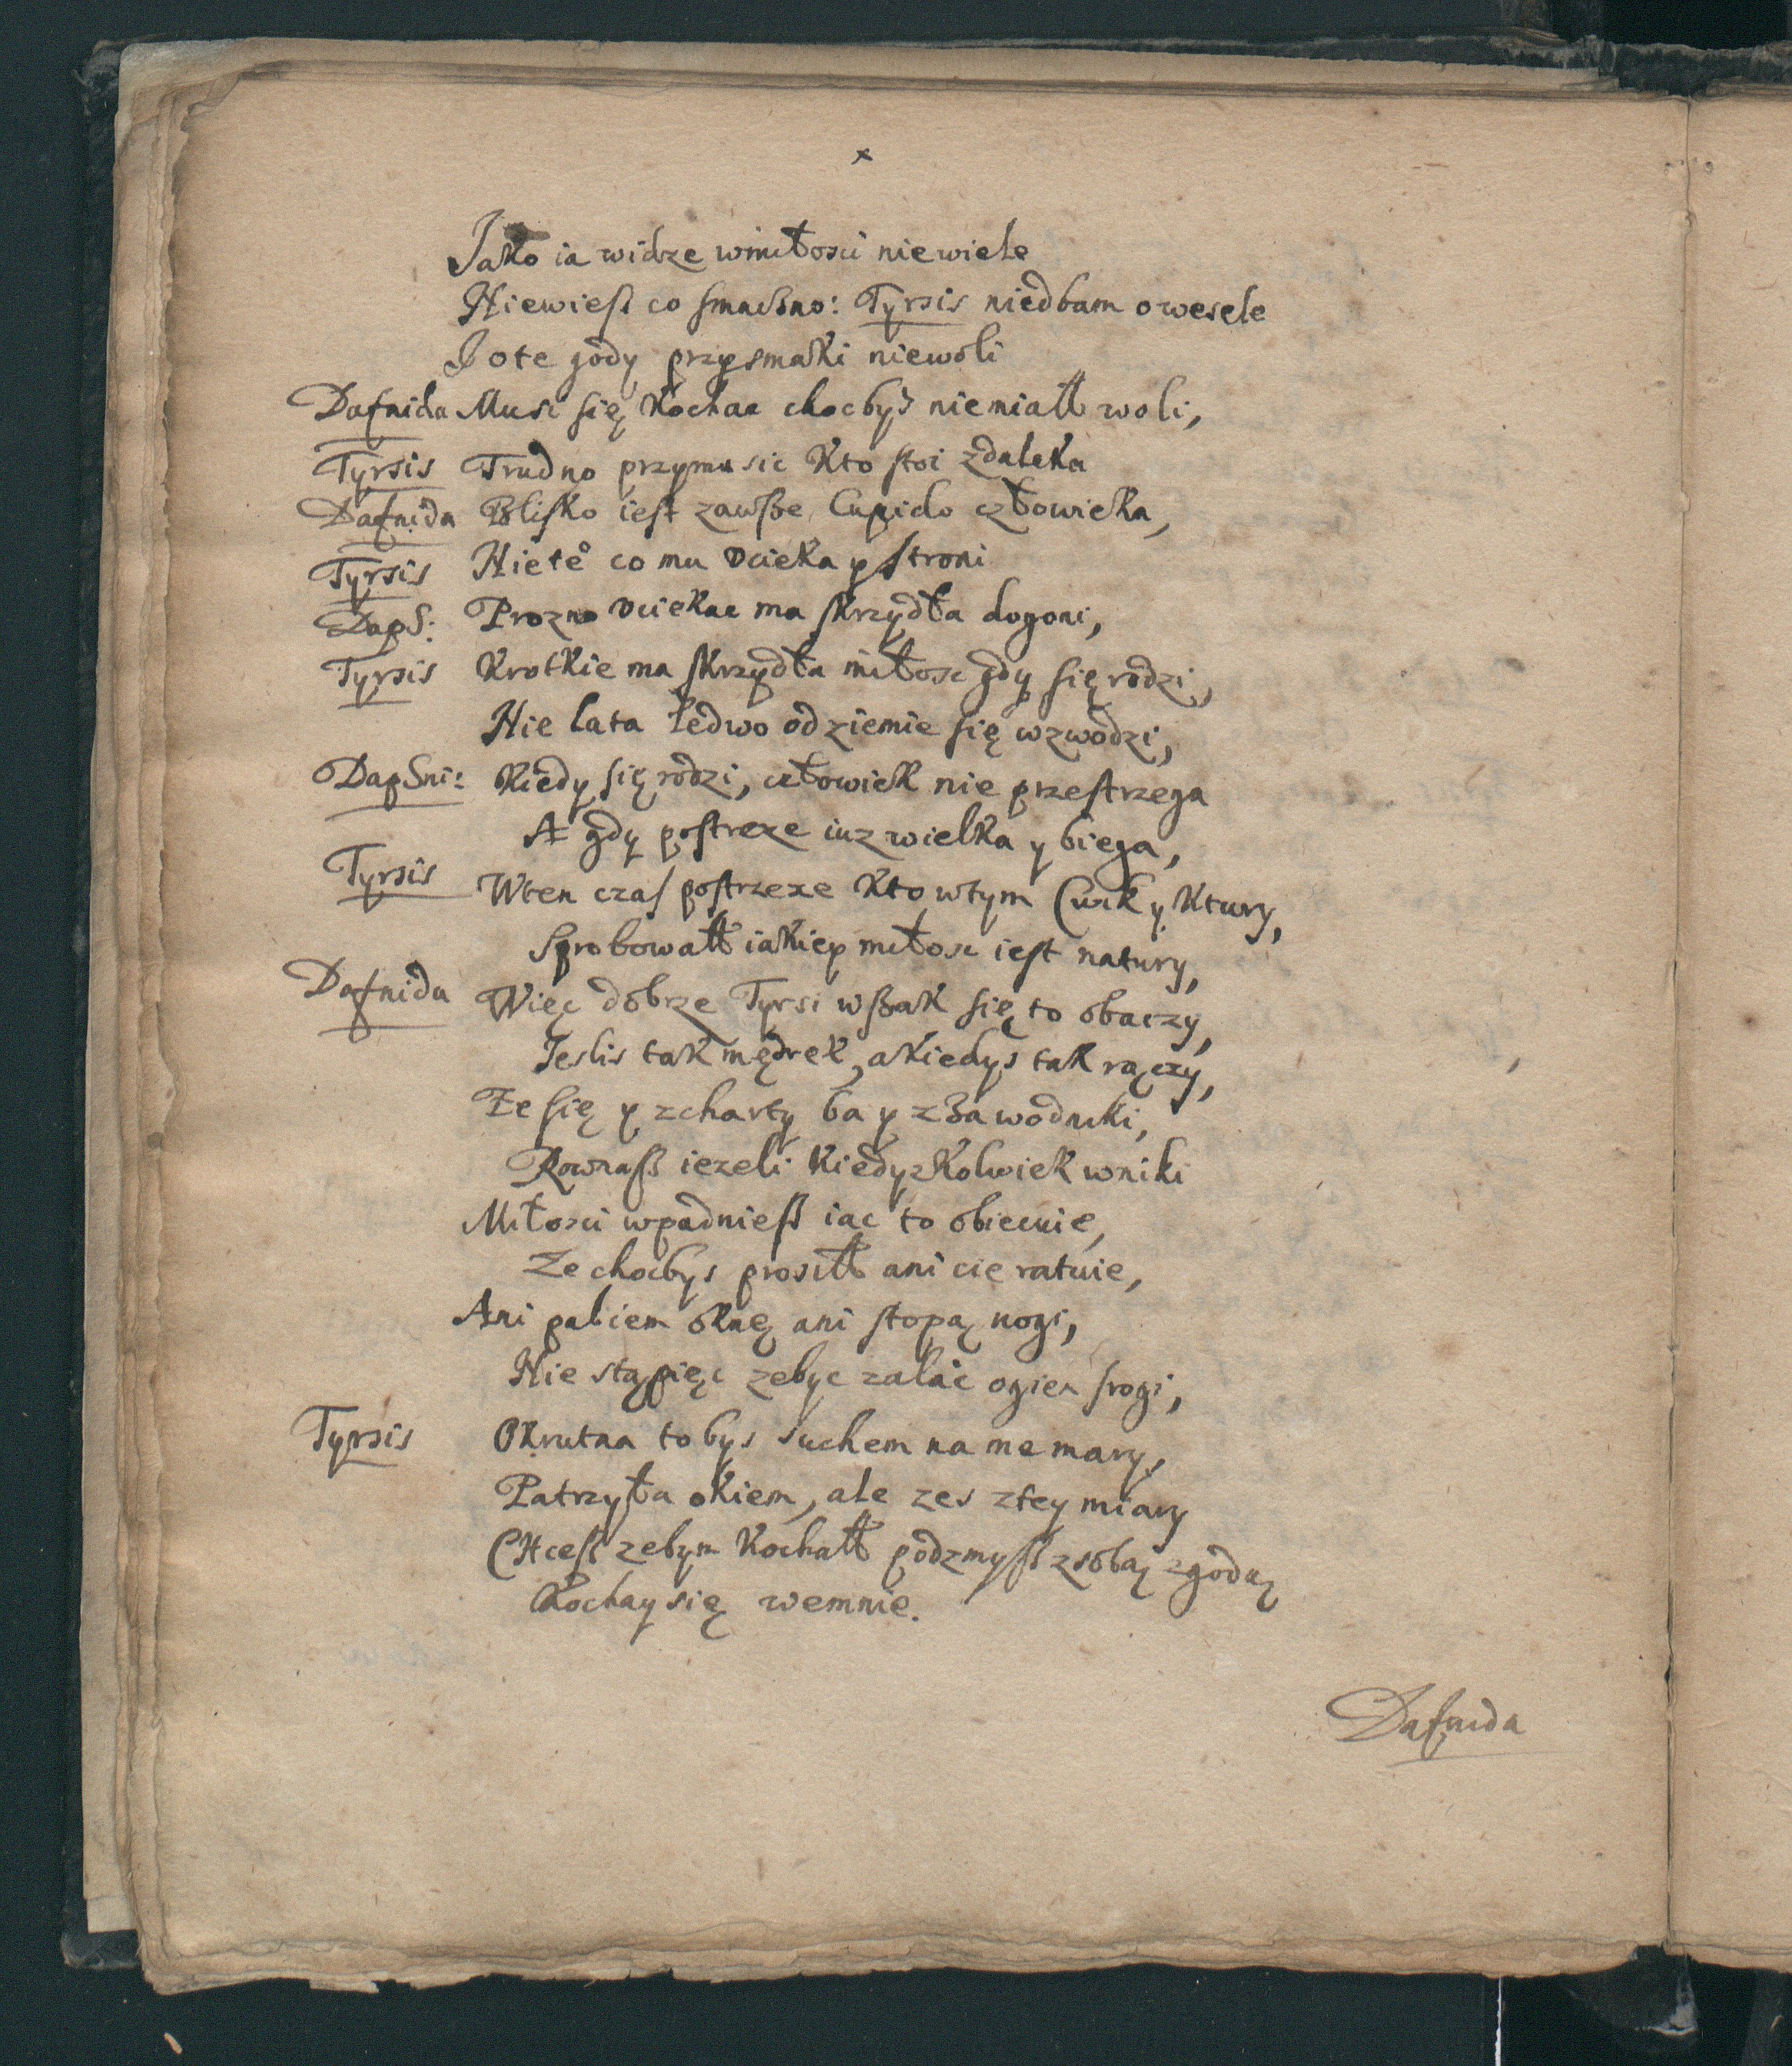 x
Jako ia widze wmiłosci niewiele
Niewiesz co smaczno: Tyrsis niedbam o wesele
I ote gody przysmaki niewoli
Dafnida Musi się kochac chocbyś niemiałł woli,
Tyrsis Trudno przymusic kto stoi zdaleka
Dafnida Blisko iest zawsze Cupido człowieka,
Tyrsis Nie te° co mu vcieka y stroni
Daph: Prozno vciekac ma skrzydła dogoni,
Tyrsis Krotkie ma skrzydła miłosc gdy się rodzi,
Nie lata ledwo od ziemie się wzwodzi,
Daphni: Kiedy się rodzi, człowiek nie przestrzega
A gdy postrzeze iuz wielka y biega,
Tyrsis Wten czas postrzeze kto wtym Cwik y ktury,
Sprobowałł iakiey miłosc iest natury,
Dafnida Więc dobrze Tyrsi wszak się to obaczy,
Ieslis tak mędrek, a kiedys tak rączy,
Ze się y zcharty ba y zzawodniki,
Rownasz iezeli kiedyzkolwiek wniki
Miłosci wpadniesz iac to obiecuię,
Ze chocbys prosiłł ani cie ratuie,
Ani palcem oknę ani stopą nogi,
Nie stąpięc zebyc zalac ogien srogi,
Tyrsis Okrutna to bys suchem na me mary,
Patrzyła okiem, ale zes ztey miary
CHcesz zebym kochałł podzmysz zsobą zgodą
Kochay się wemnie.
Dafnida